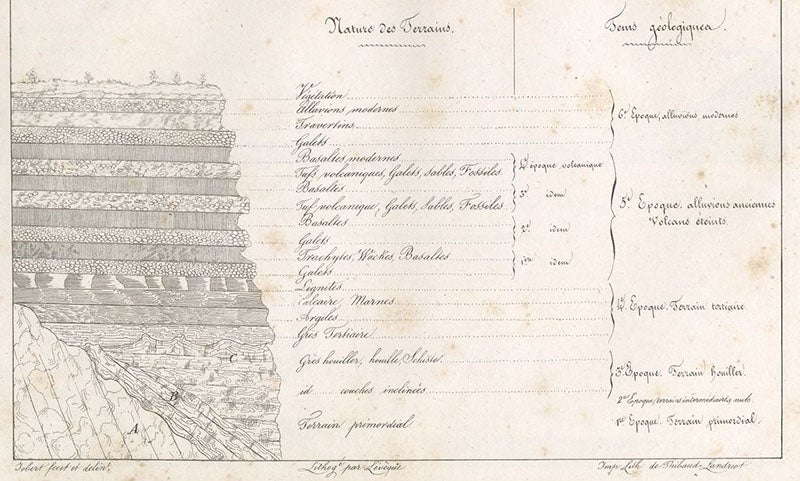 Nature des Terrains.
Tems géologiques.
Végétation
Alluvions modernes
Travertins
Galets
6e Epoque, alluvions modernes
Basaltes modernes
Tufs volcaniques, Galets, Sables, Fossiles.
4e époque volcanique
Basaltes
Tuf volcanique, Galets, Sables, Fossiles
3e idem
Basaltes
Galets
2e idem
Trachytes, Wackes, Basaltes
Galets
1re idem
5e Epoque. alluvions anciennes
Volcans éteints.
Lignites
Calcaire, Marnes
Argiles
Grès Tertiaire
4e Epoque. Terrain tertiaire
Grès houiller, houille, Schiste
id couches inclinées
3e Epoque. Terrain houiller.
Epoque, terrains intermédiaires
Terrain primordial.
1re Epoque. Terrain primordial.
A
B
C
Jobert fecit et delint.
Lithog. par Lévêque
Imp. Lith. de Thibaud-Landriot